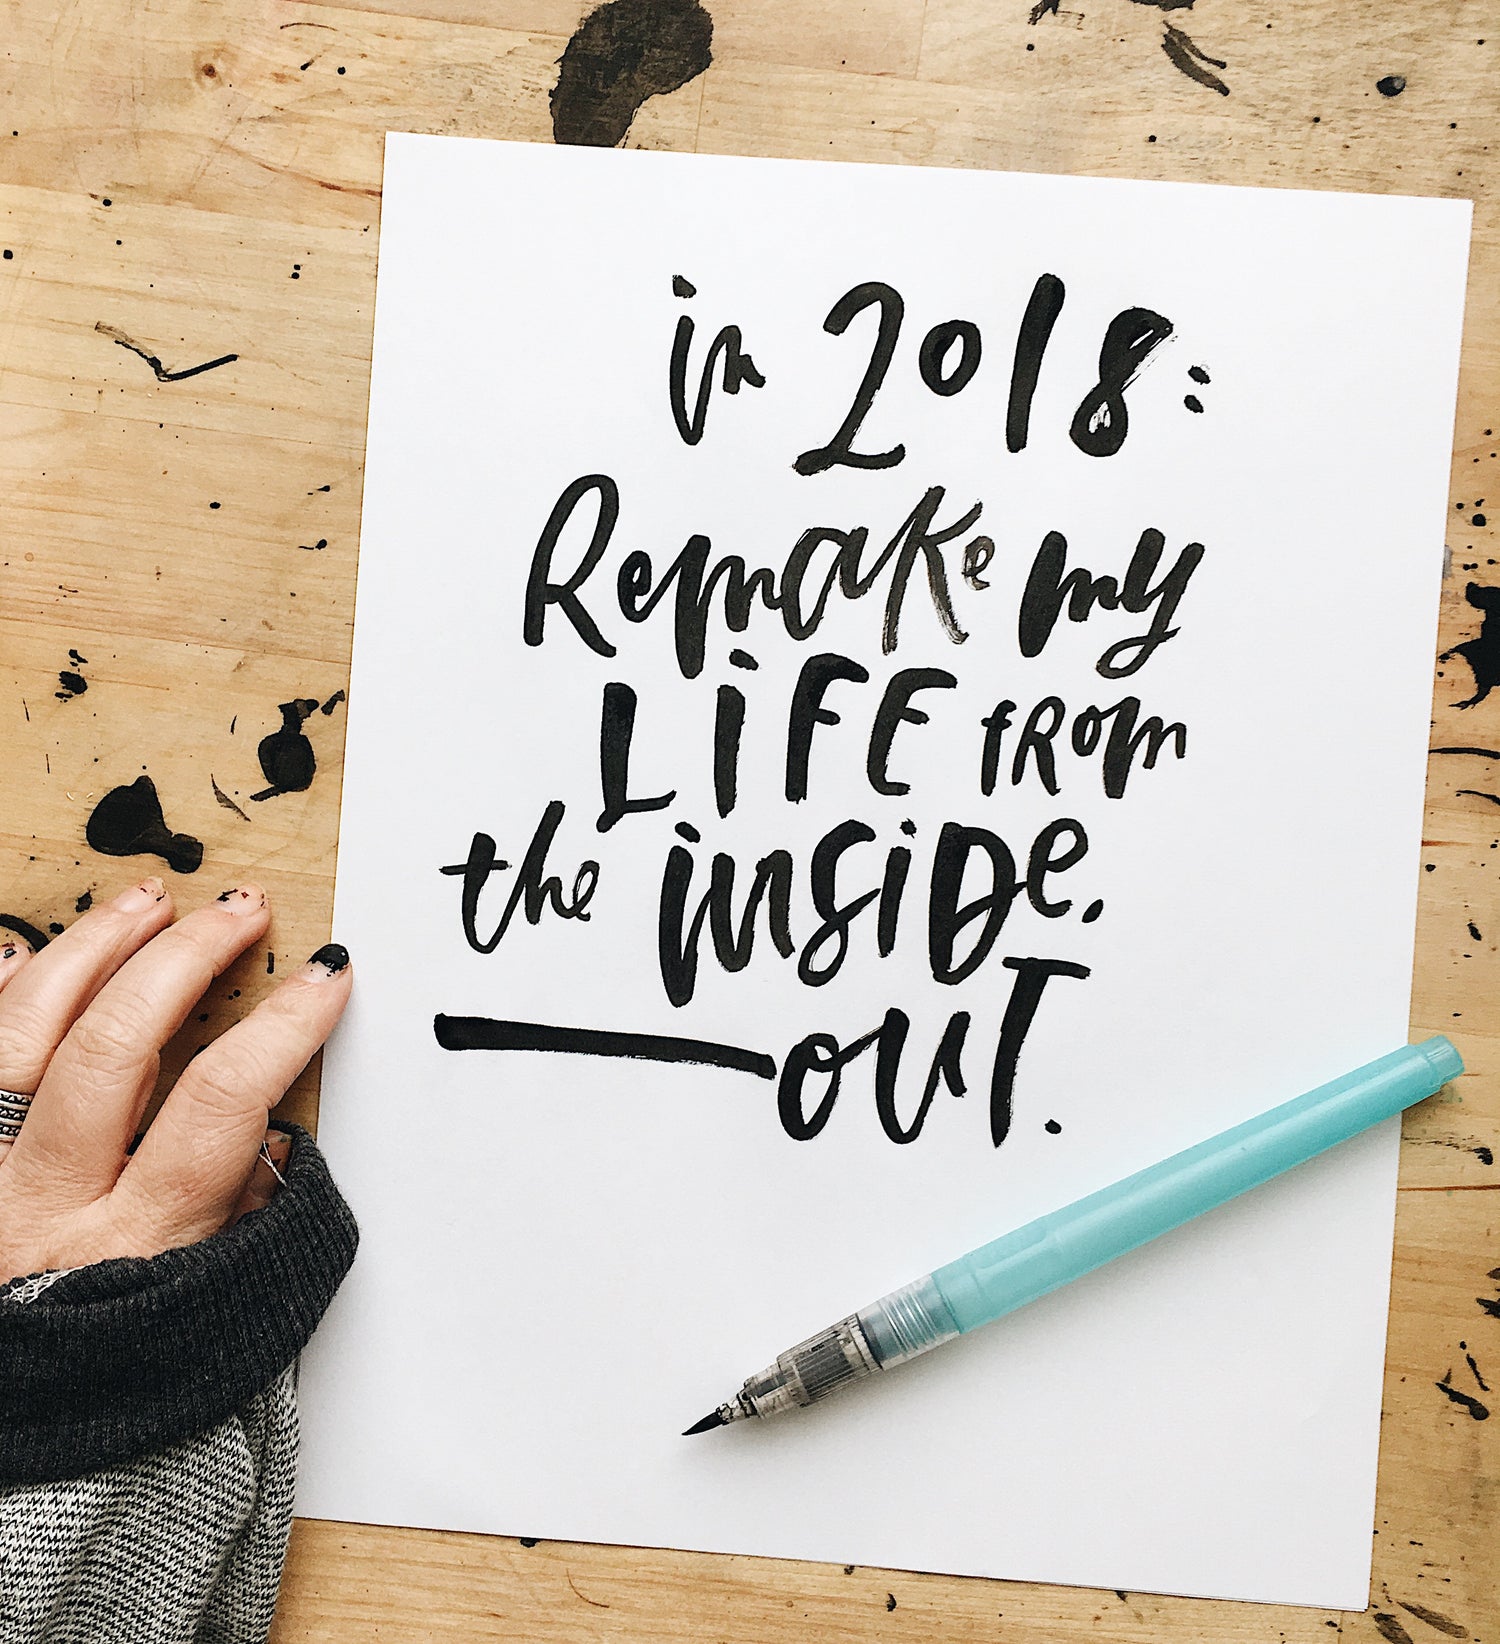 in 2018:
Remake my
LiFE fRom
the inSiDe.
— ouT.